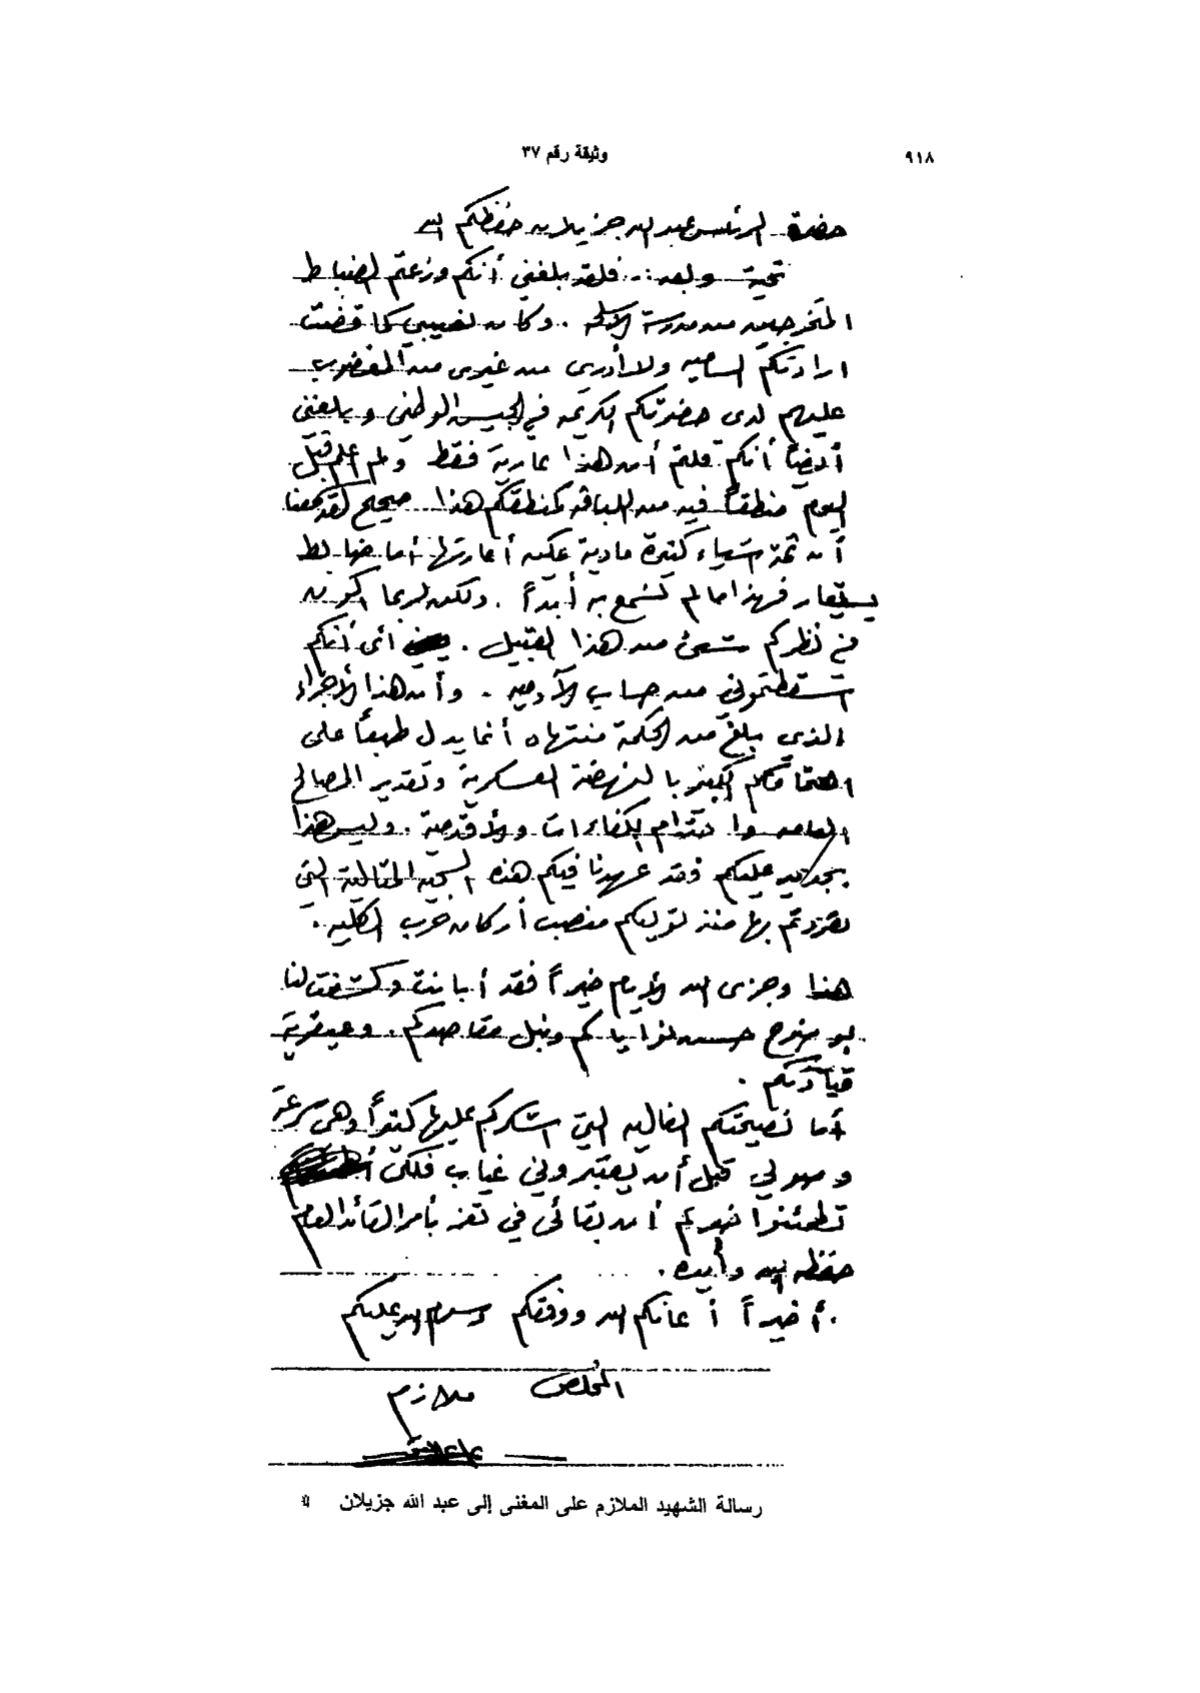 ٩١٨
وثيقة رقم ٣٧
حضرة الرئيس عبد الله جزيلان حفظكم الله
تحية وبعد:.. فلقد بلغني أنكم وزعتم الضباط
المتخرجين من مدرسة الأسلحة . وكان نصيبي كما قضت
ارادتكم السامية ولا أدري من غيري من المغضوب
عليهم لدى حضرتكم الكريمة في الجيش الوطني وبلغني
أيضاً أنكم قلتم أن هذا عارية فقط ولم اعلم قبل
اليوم منطقاً فيه من اللباقة كمنطقكم هذا صحيح لقد سمعنا
أن ثمة اشياء كثيرة مادية يمكن أعارتها أما ضابط
يستعار فهذا مالم نسمع به أبداً . ولكن لربما اكون
في نظركم شئ من هذا القبيل . أي أنكم
اسقطتموني من حساب الآدميين . وأن هذا الأجراء
الذي بلغ من الحكمة منتهاه أنما يدل طبعاً على
اهتمامكم الكبير بالنهضة العسكرية وتقدير المصالح
العامه واحترام الكفاءات والأقدمية . وليس هذا
بجديد عليكم فقد عهدنا فيكم هذه السجية المثالية التي
تفردتم بها منذ توليكم منصب أركان حرب الكلية .
هذا وجزى الله الأيام خيراً فقد أبانت وكشفت لنا
بوضوح حسن نواياكم ونبل مقاصدكم . وعبقرية
قيادتكم .
أما نصيحتكم الغالية التي اشكركم عليها كثيراً وهي سرعة
وصولي قبل أن يعتبروني غياب فلكي
تطمئنوا أن بقائي في تعز بأمر القائد العام
حفظه الله وأيده .
. أخيراً أعانكم الله ووفقكم وسلام الله عليكم
المخلص ملازم
رسالة الشهيد الملازم على المغنى إلى عبد الله جزيلان